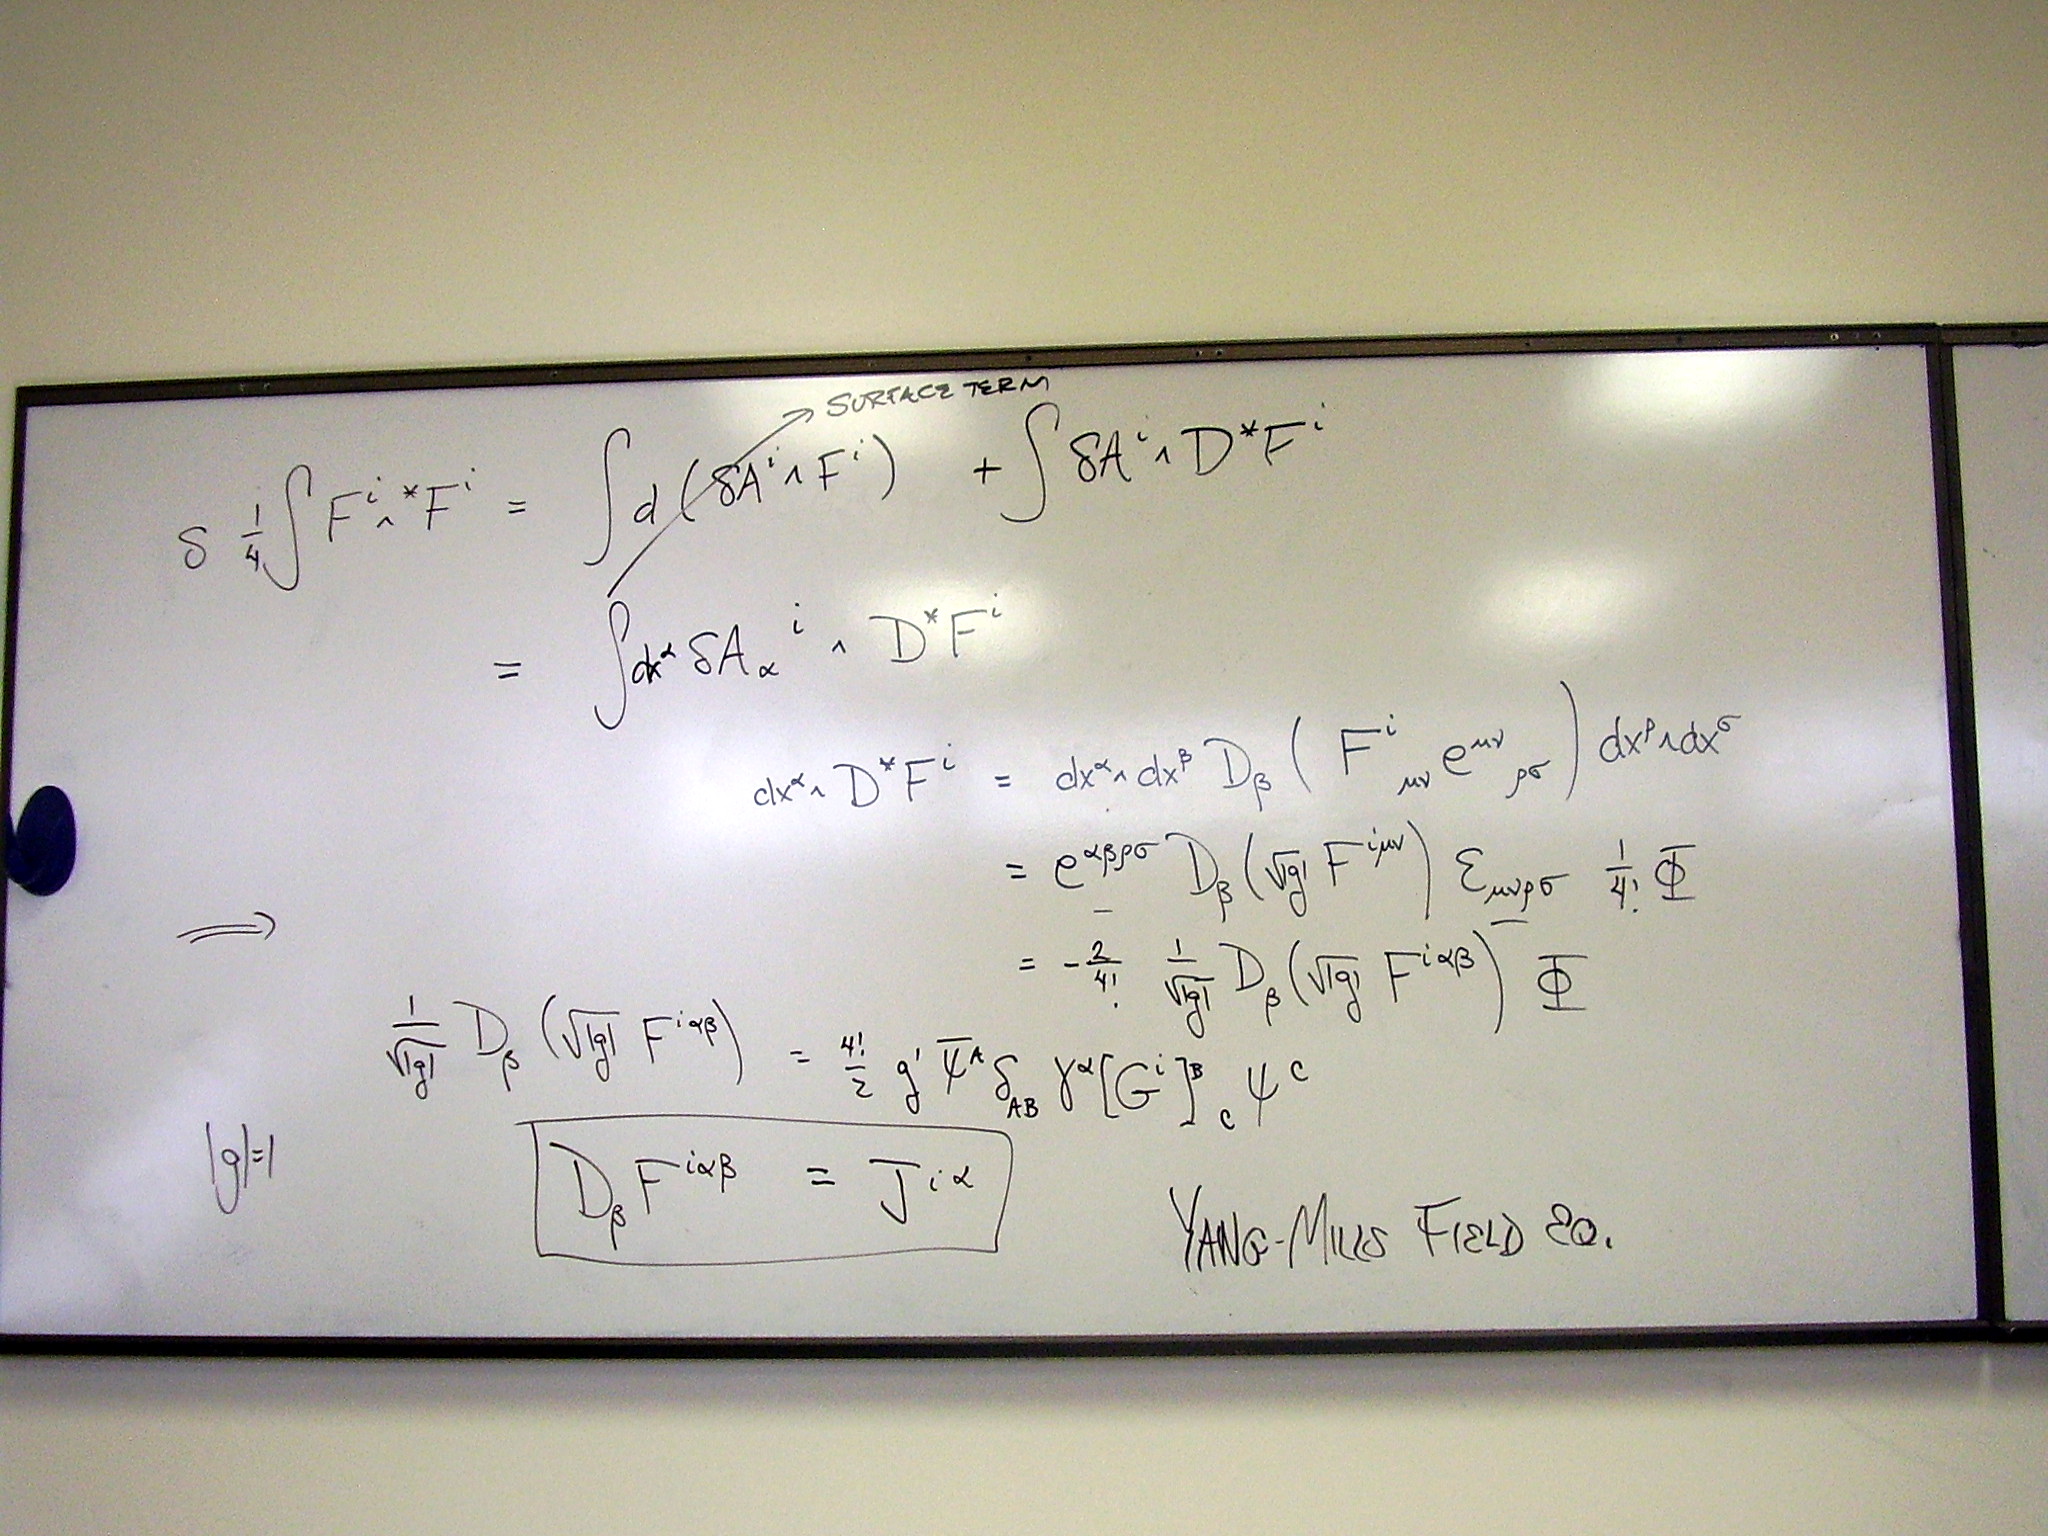 SURFACE TERM
δ 1/4 ∫ Fⁱ ∧ *Fⁱ = ∫ d(δAⁱ ∧ Fⁱ) + ∫ δAⁱ ∧ D*Fⁱ
= ∫ dx^α δA_α^i ∧ D*Fⁱ
dx^α ∧ D*Fⁱ = dx^α ∧ dx^β D_β (F^i_μν e^μν_ρσ) dx^ρ ∧ dx^σ
= e^αβρσ D_β (√|g| F^iμν) ε_μνρσ 1/4! Φ
⟹
= -2/4! 1/√|g| D_β (√|g| F^iαβ) Φ
1/√|g| D_β (√|g| F^iαβ) = 4!/2 g' ψ̄^A δ_AB γ^α [Gⁱ]^B_C ψ^C
|g|=1
D_β F^iαβ = J^iα
YANG-MILLS FIELD EQ.